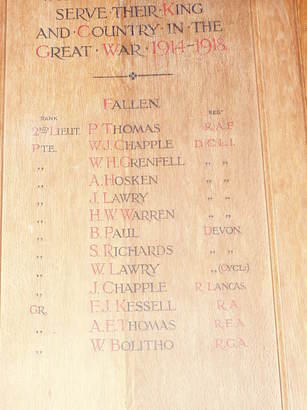 SERVE THEIR KING
AND · COUNTRY · IN · THE
GREAT · WAR · 1914–1918.
FALLEN.
RANK REGT
2ND LIEUT. P. THOMAS R.A.F.
PTE. W.J. CHAPPLE D.C.L.I.
„ W.H. GRENFELL „ „
„ A. HOSKEN „ „
„ J. LAWRY „ „
„ H.W. WARREN „ „
„ B. PAUL DEVON.
„ S. RICHARDS „ „
„ W. LAWRY „ (CYCL.)
„ J. CHAPPLE R. LANCAS.
GR. E.J. KESSELL R.A.
„ A.E. THOMAS R.F.A.
„ W. BOLITHO R.G.A.